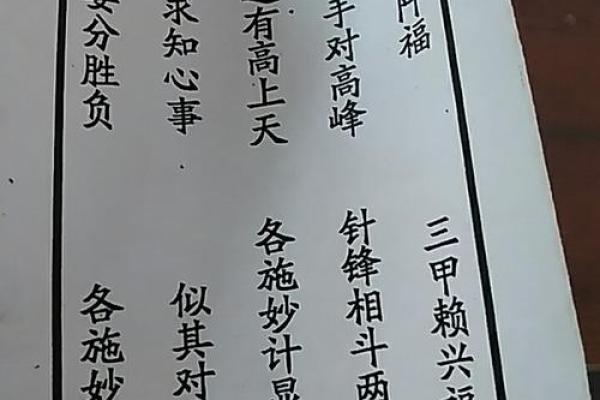 福 三甲赖兴福
手对高峰 针锋相斗两
有高上天 各施妙计显
求知心事 似其对
分胜负 各施妙